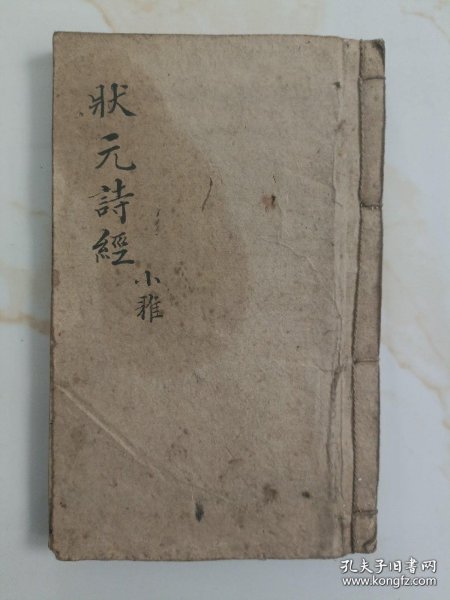 狀元詩經
小雅
孔夫子旧书网
www.kongfz.com